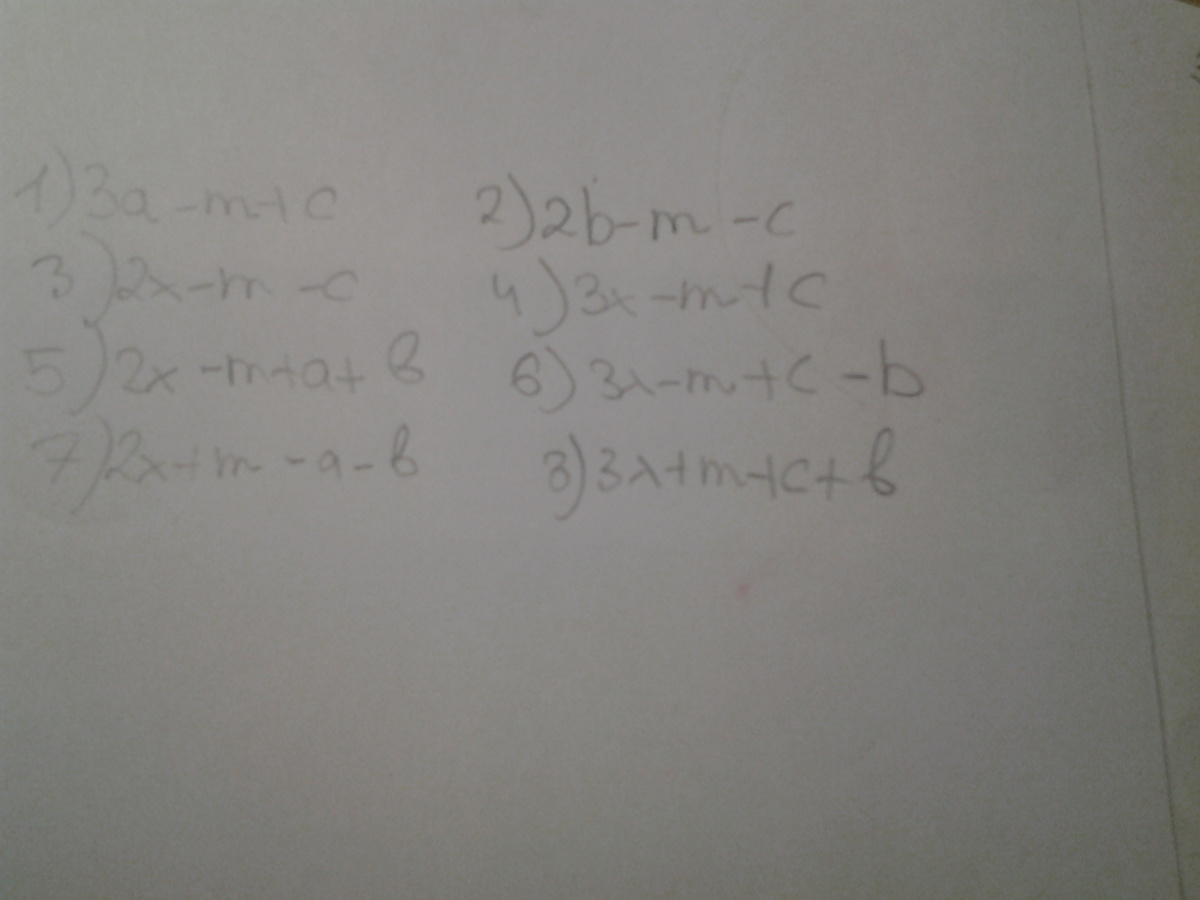 1) 3a - m + c 2) 2b - m - c
3) 2x - m - c 4) 3x - m + c
5) 2x - m + a + b 6) 3x - m + c - b
7) 2x + m - a - b 8) 3x + m + c + b